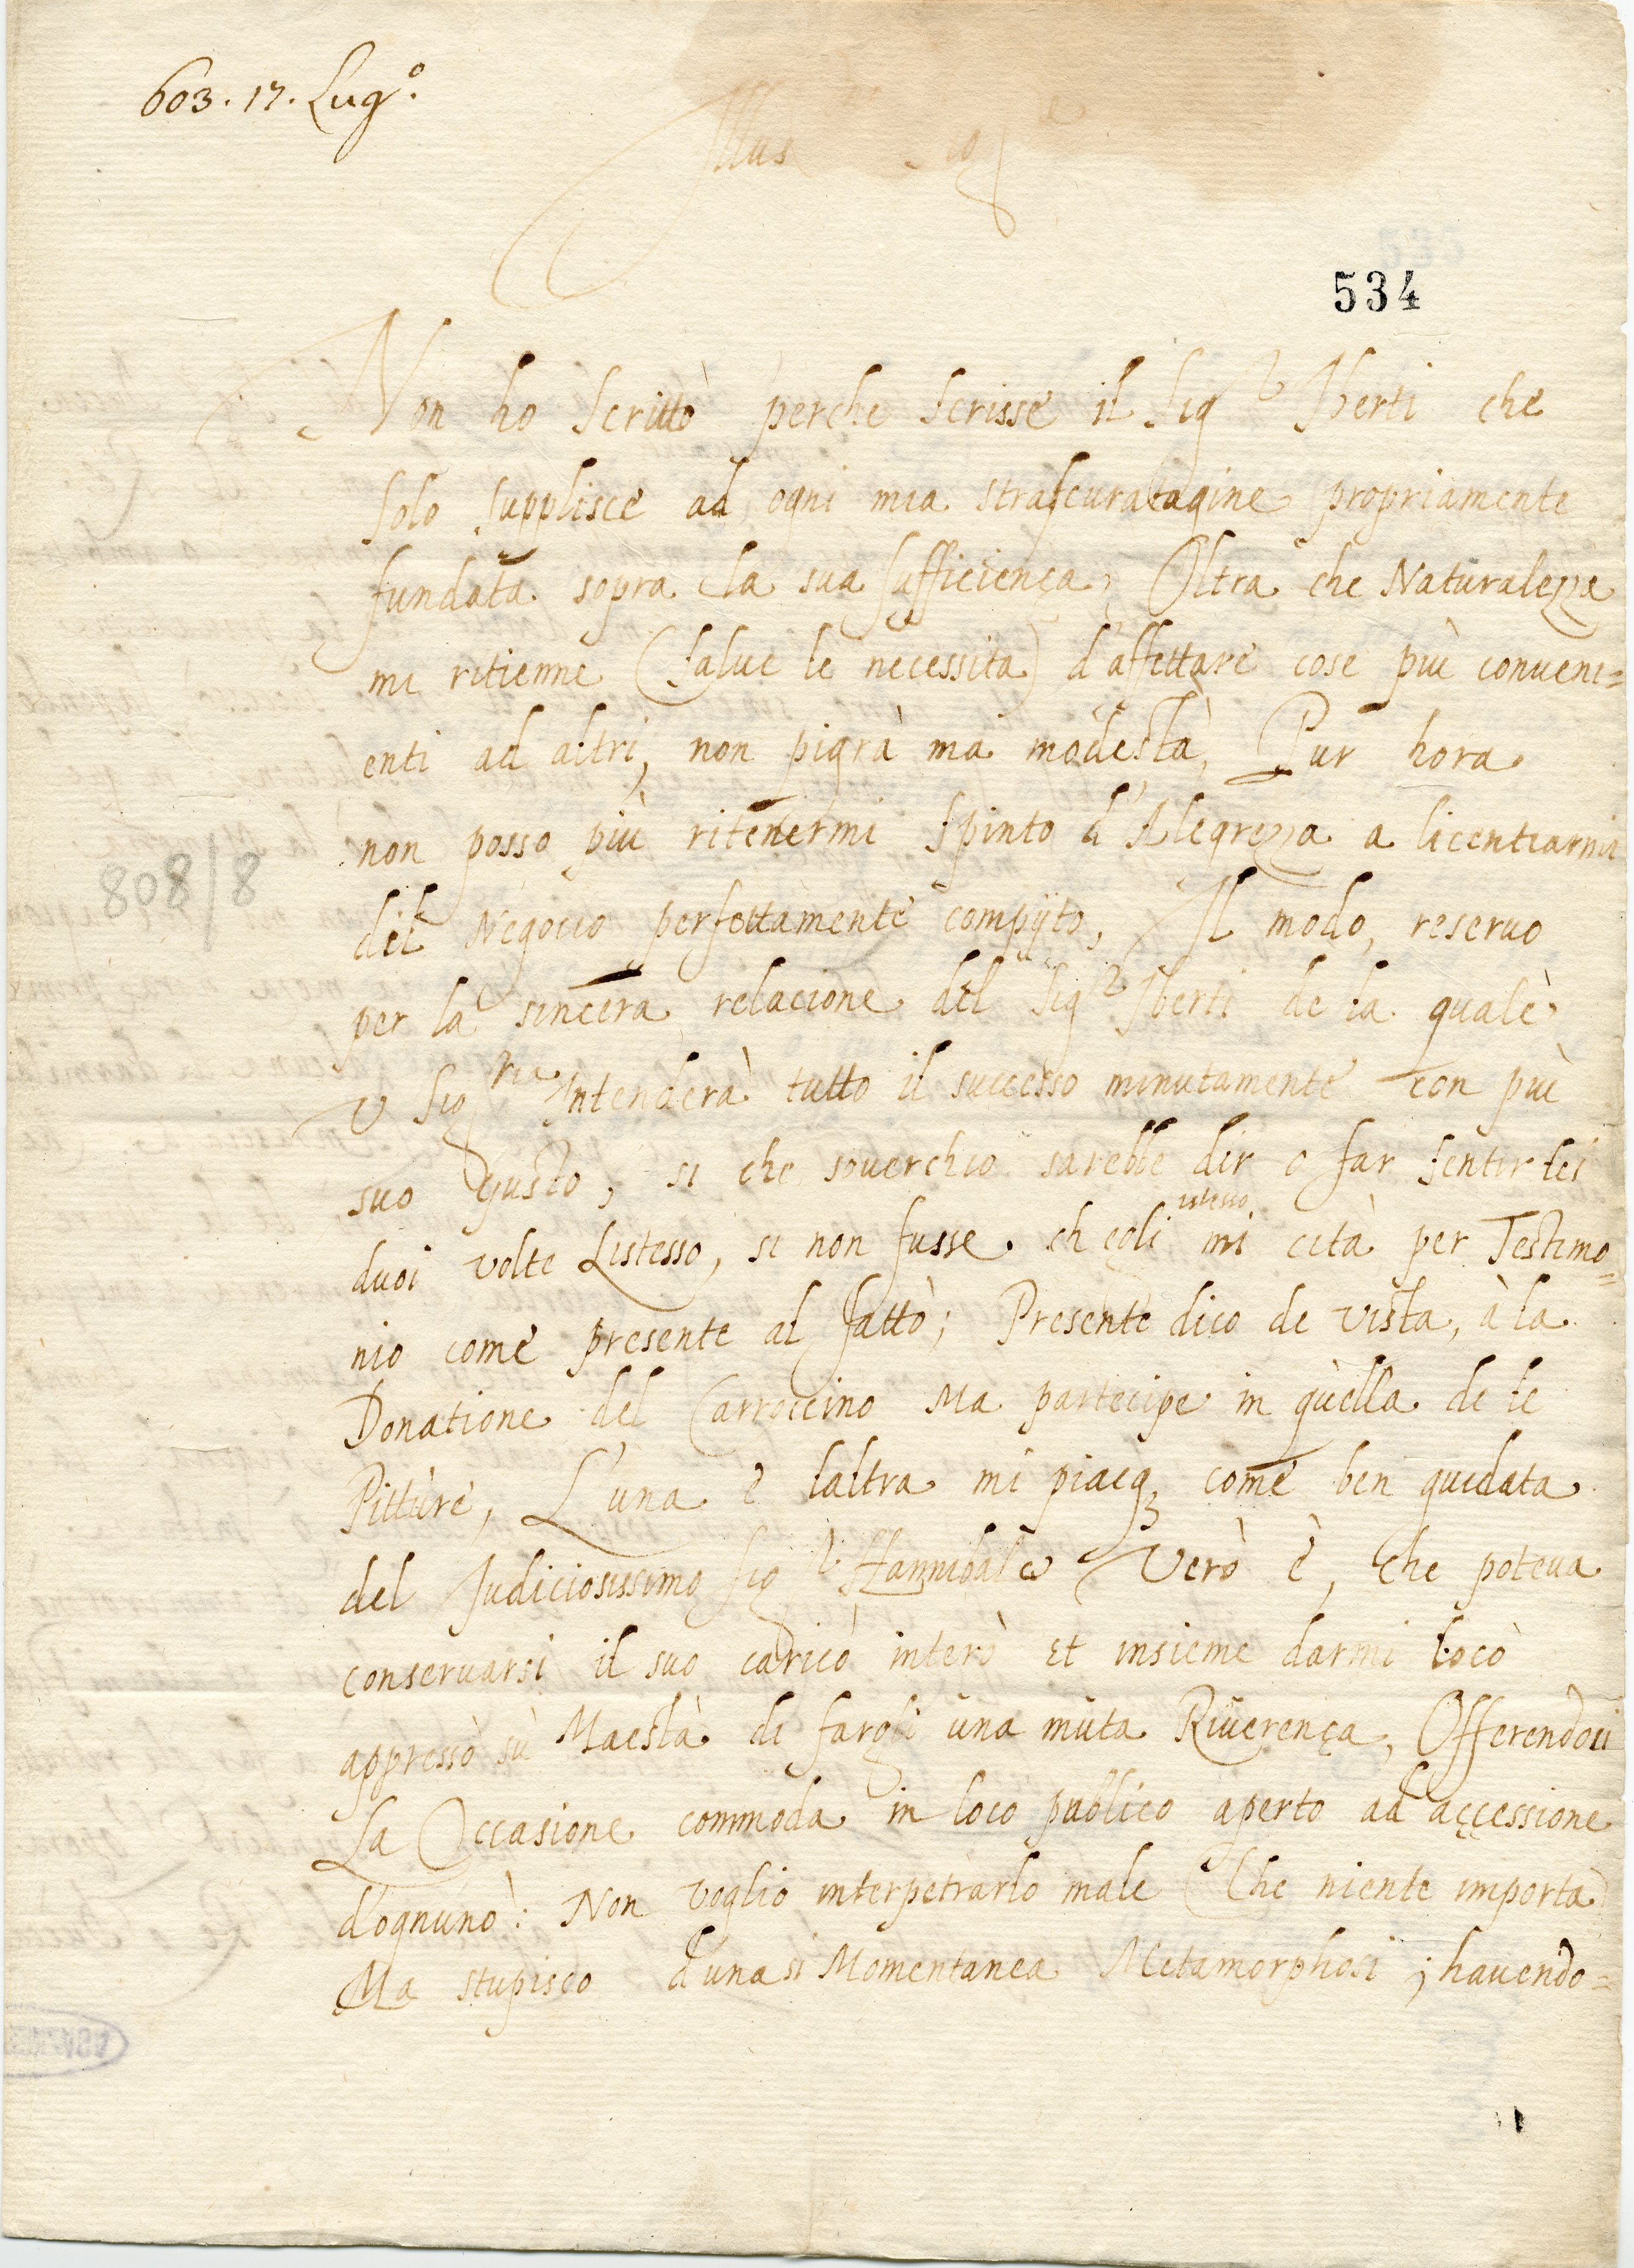 603. 17. Lug.o
Illus Sig
534
Non ho scritto perche scrisse il Sigr Iberti che
solo supplisce ad ogni mia strascuratagine propriamente
fundata sopra la sua sufficiença, Oltra che Naturalezza
mi ritienne (salve le necessita) d'affettare cose più conveni=
enti ad altri, non pigrà ma modestà, Pur hora
non posso più ritenermi spinto d'Alegrezza a licentiarmi
del Negocio perfettamente compijto, Il modo, reservo
per la sincera relacione del Sigr Iberti de la quale
v Sigria Intenderà tutto il successo minutamente con più
suo gusto, si che soverchio sarebbe dir o far sentir lei
duoi volte Listesso, si non fusse ch egli istesso mi cità per Testimo=
nio come presente al fatto; Presente dico de vista, à la
Donatione del Carroccino Ma partecipe in quella de le
Pitture, L'una e laltra mi piacq3 come ben guidata
del Judiciosissimo Sigr Hannibale Verò è, che poteva
conservarsi il suo caricò interò et insieme darmi locò
appressò sù Maestà di fargli una muta Riverença, Offerendosi
La Occasione commoda in loco publico aperto ad accessione
d'ognunò: Non voglio interpetrarlo male (che niente importa)
Ma stupisco d'una si Momentanea Metamorphosi; havendo=
808/8